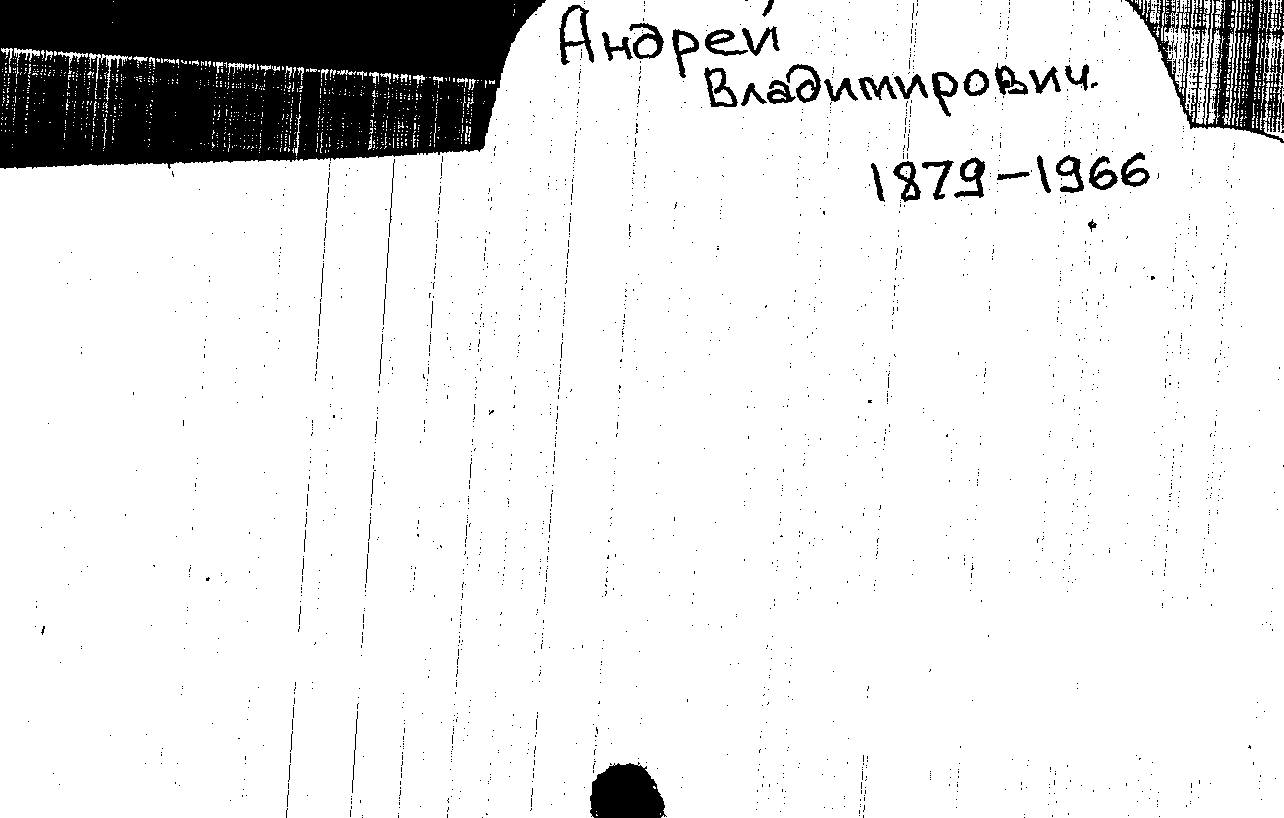 Андрей
Владимирович.
1879-1966